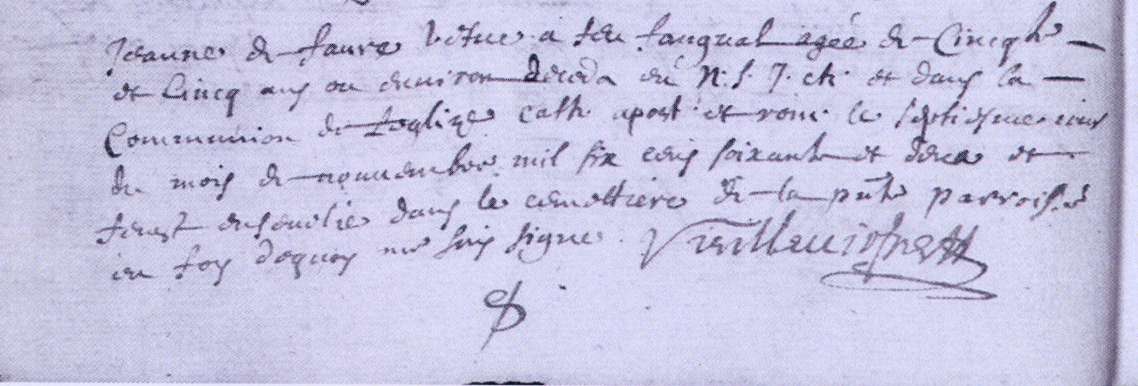 Jeanne de faure vefue a feu fauqual agée de Cincqte
et Cincq ans ou environ deceda en N. S. J. ch. et dans la
Communion de leglize cath. apost. et rom. le septiesme iour
du mois de nouuembre mil six cens soixante et deux et
feust enseuelie dans le cemettiere de la pnte parroisse
en foy dequoy me suis signe.